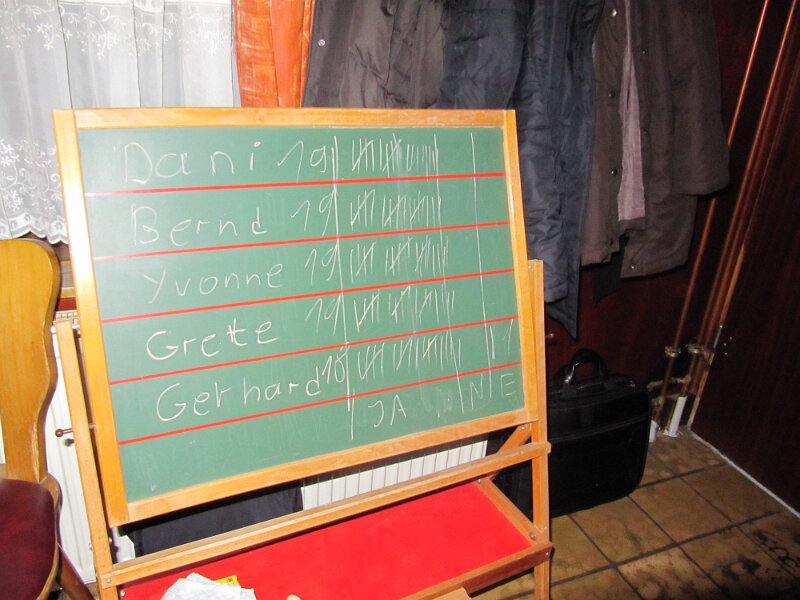 Dani 19
Bernd 19
Yvonne 19
Grete 19 1
Gerhard 18
JA N E